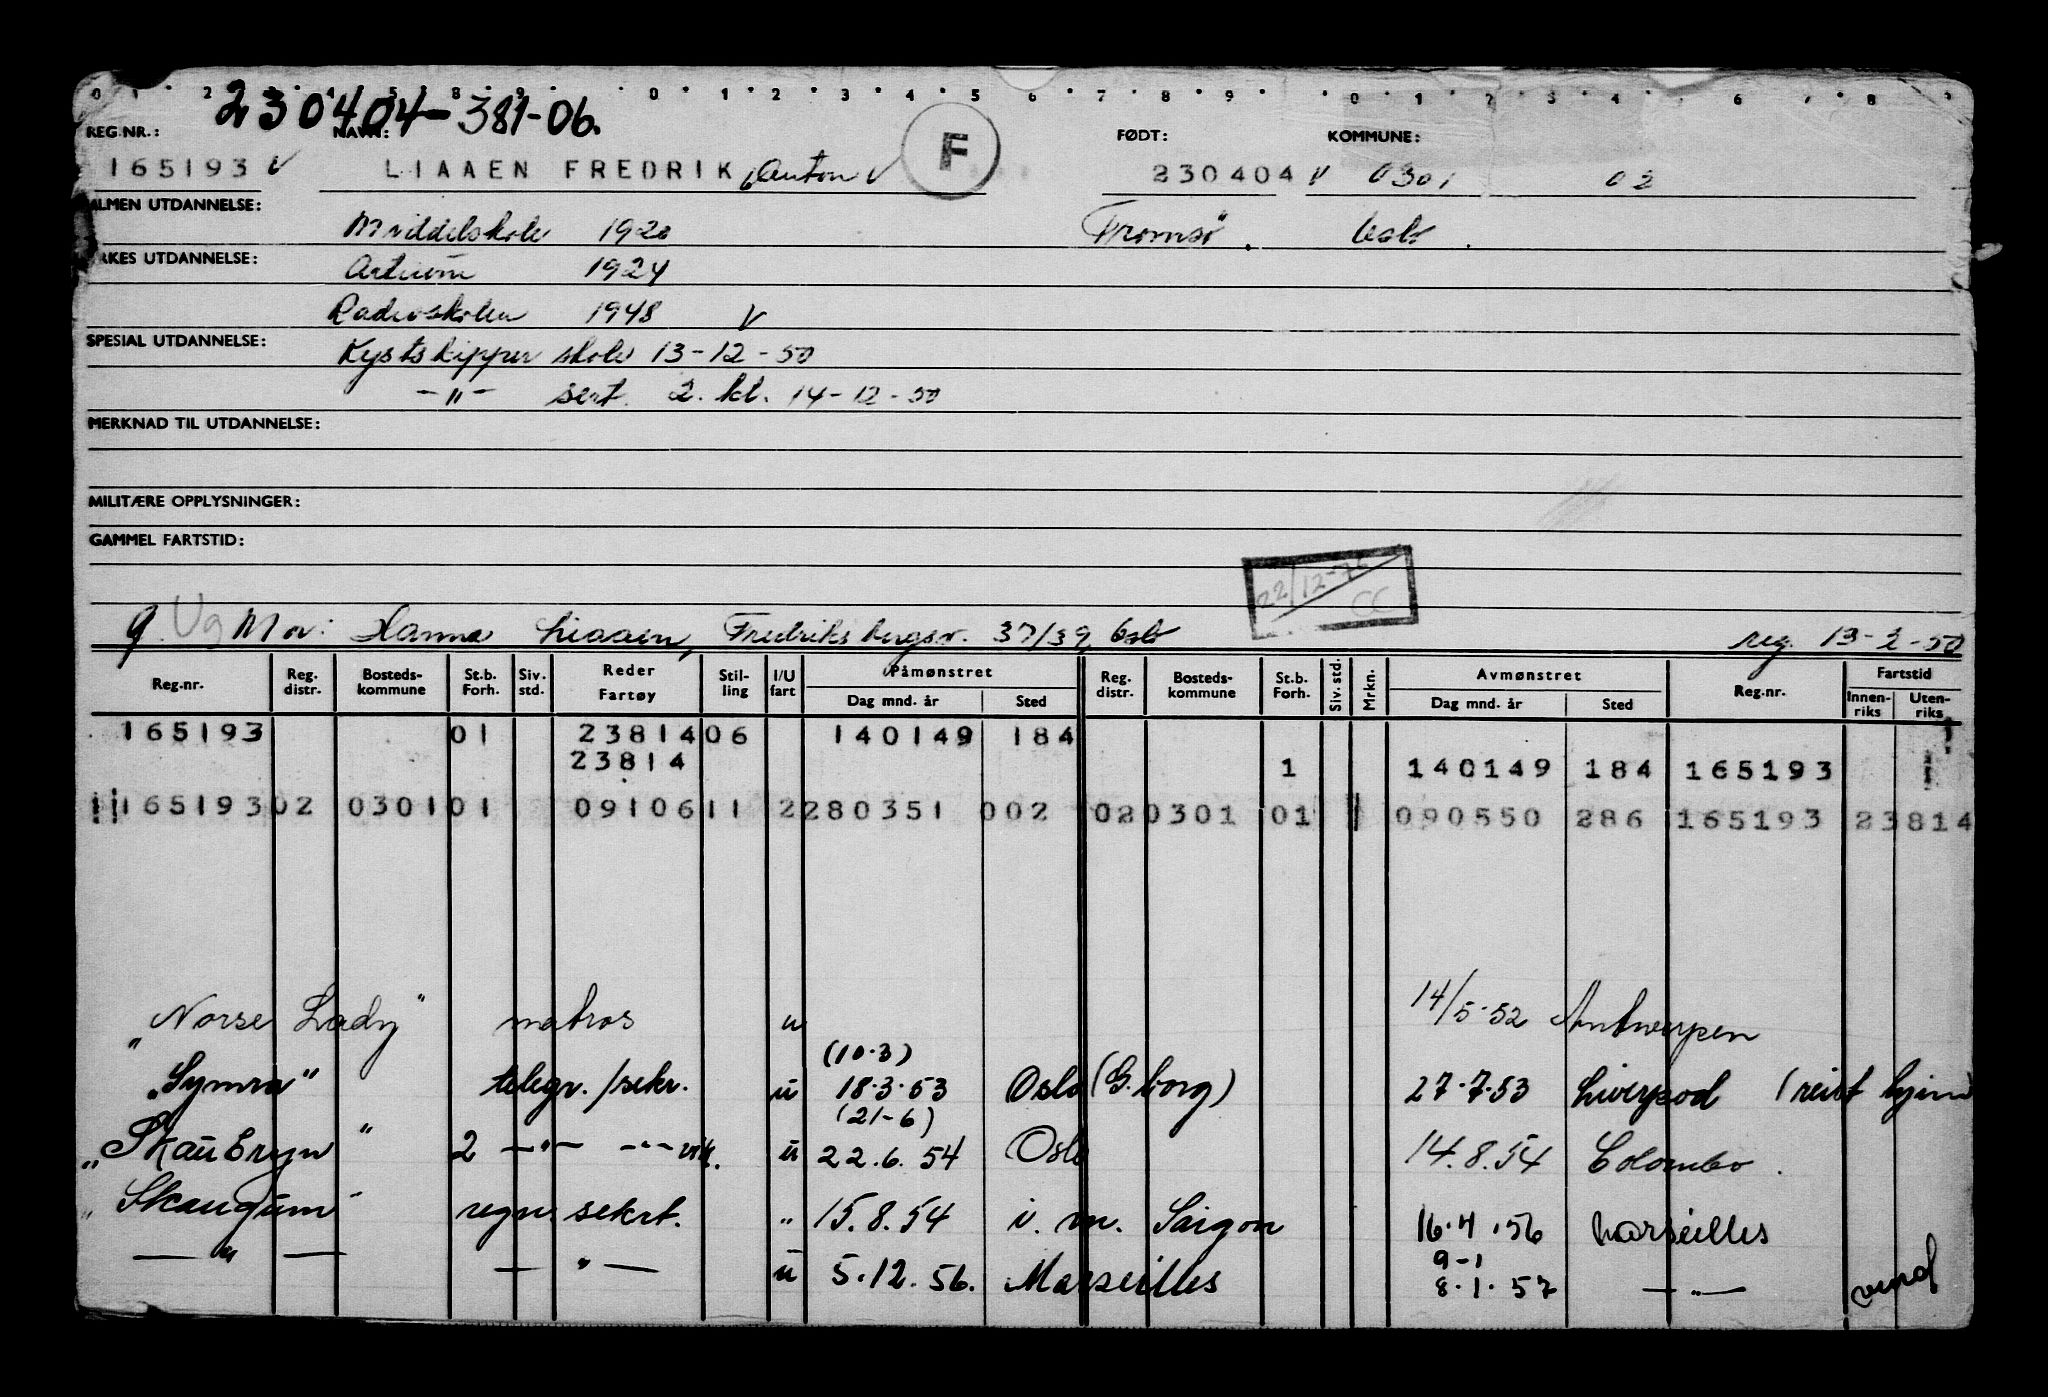 0 1 2 4 5 8 9 0 1 2 3 4 5 6 7 8 9 0 1 2 3 4 6 8
230404-381-06.
REG.NR.: NAVN: F FØDT: KOMMUNE:
165193 V LIAAEN FREDRIK, Anton V 230404 V 0301 02
ALMEN UTDANNELSE: Middelskole 1920 Tromsö. Oslo.
YRKES UTDANNELSE: Artium 1924
Radioskolen 1948 V
SPESIAL UTDANNELSE: Kystskipper skole 13-12-50
-"- sert. 2. kl. 14-12-50
MERKNAD TIL UTDANNELSE:
MILITÆRE OPPLYSNINGER:
GAMMEL FARTSTID:
22/12-72 CC
g. Ug Mor: Hanna Liaaen, Fredriksbergsv. 37/39, Oslo reg. 13-2-50
Reg.nr. Reg. distr. Bosteds-kommune St.b. Forh. Siv. std. Reder Fartøy Stil-ling I/U fart Påmønstret Dag mnd. år Sted Reg. distr. Bosteds-kommune St.b. Forh. Siv. std. Mrkn. Avmønstret Dag mnd. år Sted Reg.nr. Fartstid Innen-riks Uten-riks
165193 01 23814 06 140149 184
23814 1 140149 184 165193
165193 02 0301 01 09106 11 2 280351 002 02 0301 01 090550 286 165193 23814
"Norse Lady" matros u 14/5-52 Antwerpen
(10.3)
"Symra" telegr./sekr. u 18.3.53 Oslo (G.borg) 27.7.53 Liverpool (reist hjem
(21-6)
"Skaubryn" 2 -"- -"- vik. u 22.6.54 Oslo 14.8.54 Colombo.
"Skaugum" regn. sekrt. " 15.8.54 i. m. Saigon 16.4.56 Marseilles
9-1
-"- -"- u 5.12.56. Marseilles 8.1.57 -"-